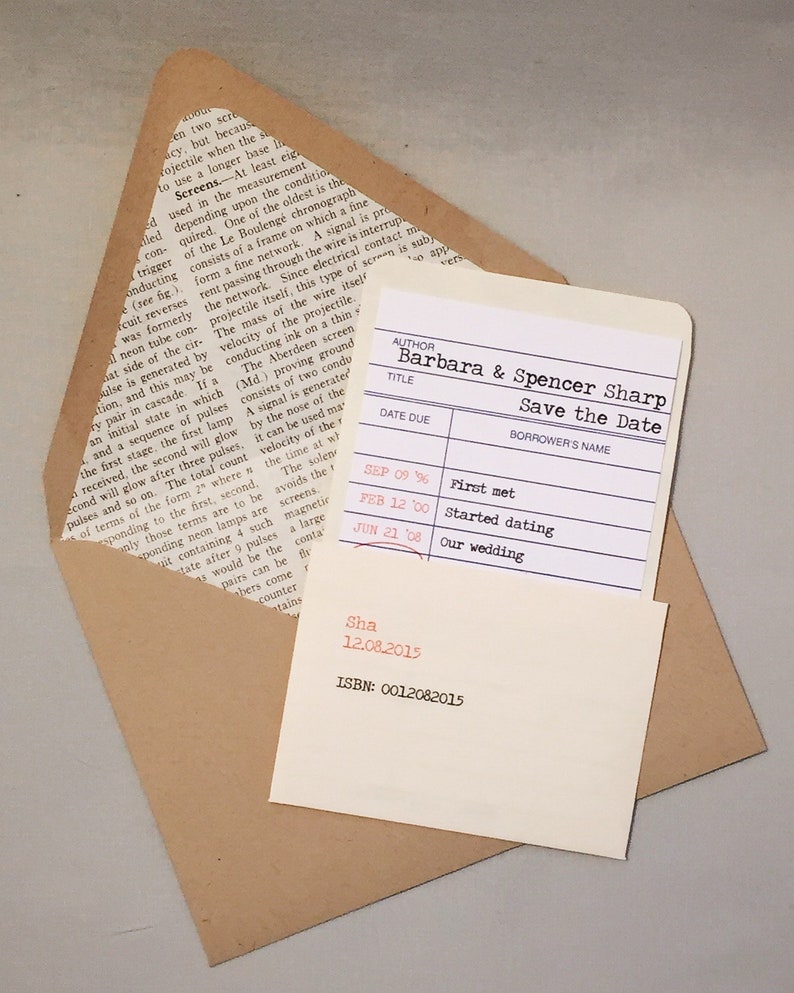 about
en two scre
cy, but becaus
rojectile when the s
to use a longer base li
Screens.—At least eig
used in the measurement
depending upon the conditio
quired. One of the oldest is the
of the Le Boulengé chronograph
consists of a frame on which a fine
form a fine network. A signal is pro
rent passing through the wire is interrup
the network. Since electrical contact m
projectile itself, this type of screen is subj
The mass of the wire itself
velocity of the projectile.
conducting ink on a thin s
The Aberdeen screen
(Md.) proving ground
consists of two condu
A signal is generated
by the nose of the
it can be used ma
velocity of the
the time at wh
The solenoi
avoids the t
screens.
magnetic
a large
conta
The
be
flu
ed
iled
con-
trigger
onducting
e (see fig.).
rcuit reverses
was formerly
l neon tube con-
hat side of the cir-
pulse is generated by
tion, and this may be
ry pair in cascade. If a
an initial state in which
and a sequence of pulses
the first stage, the first lamp
n received, the second will glow
econd will glow after three pulses,
pulses and so on. The total count
s of terms of the form 2ⁿ where n
responding to the first, second,
only those terms are to be
ponding neon lamps are
uit containing 4 such
tate after 9 pulses
as would be the
pairs can be
bers come
counter
tains
AUTHOR
Barbara & Spencer Sharp
TITLE
Save the Date
DATE DUE BORROWER'S NAME
SEP 09 '96 First met
FEB 12 '00 Started dating
JUN 21 '08 Our wedding
Sha
12.08.2015
ISBN: 0012082015